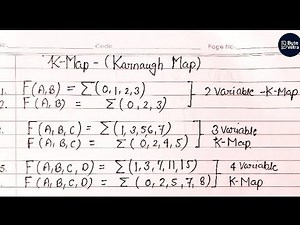 Byte Vitra
Date
Page No.
K-Map - (Karnaugh Map)
1. F(A,B) = Σ(0,1,2,3)
2. F(A,B) = Σ(0,2,3)
2 Variable -K-Map
F(A,B,C) = Σ(1,3,5,6,7)
F(A,B,C) = Σ(0,2,4,5)
3 Variable
K-Map
5. F(A,B,C,D) = Σ(1,3,7,11,15)
F(A,B,C,D) = Σ(0,2,5,7,8)
4 Variable
K-Map